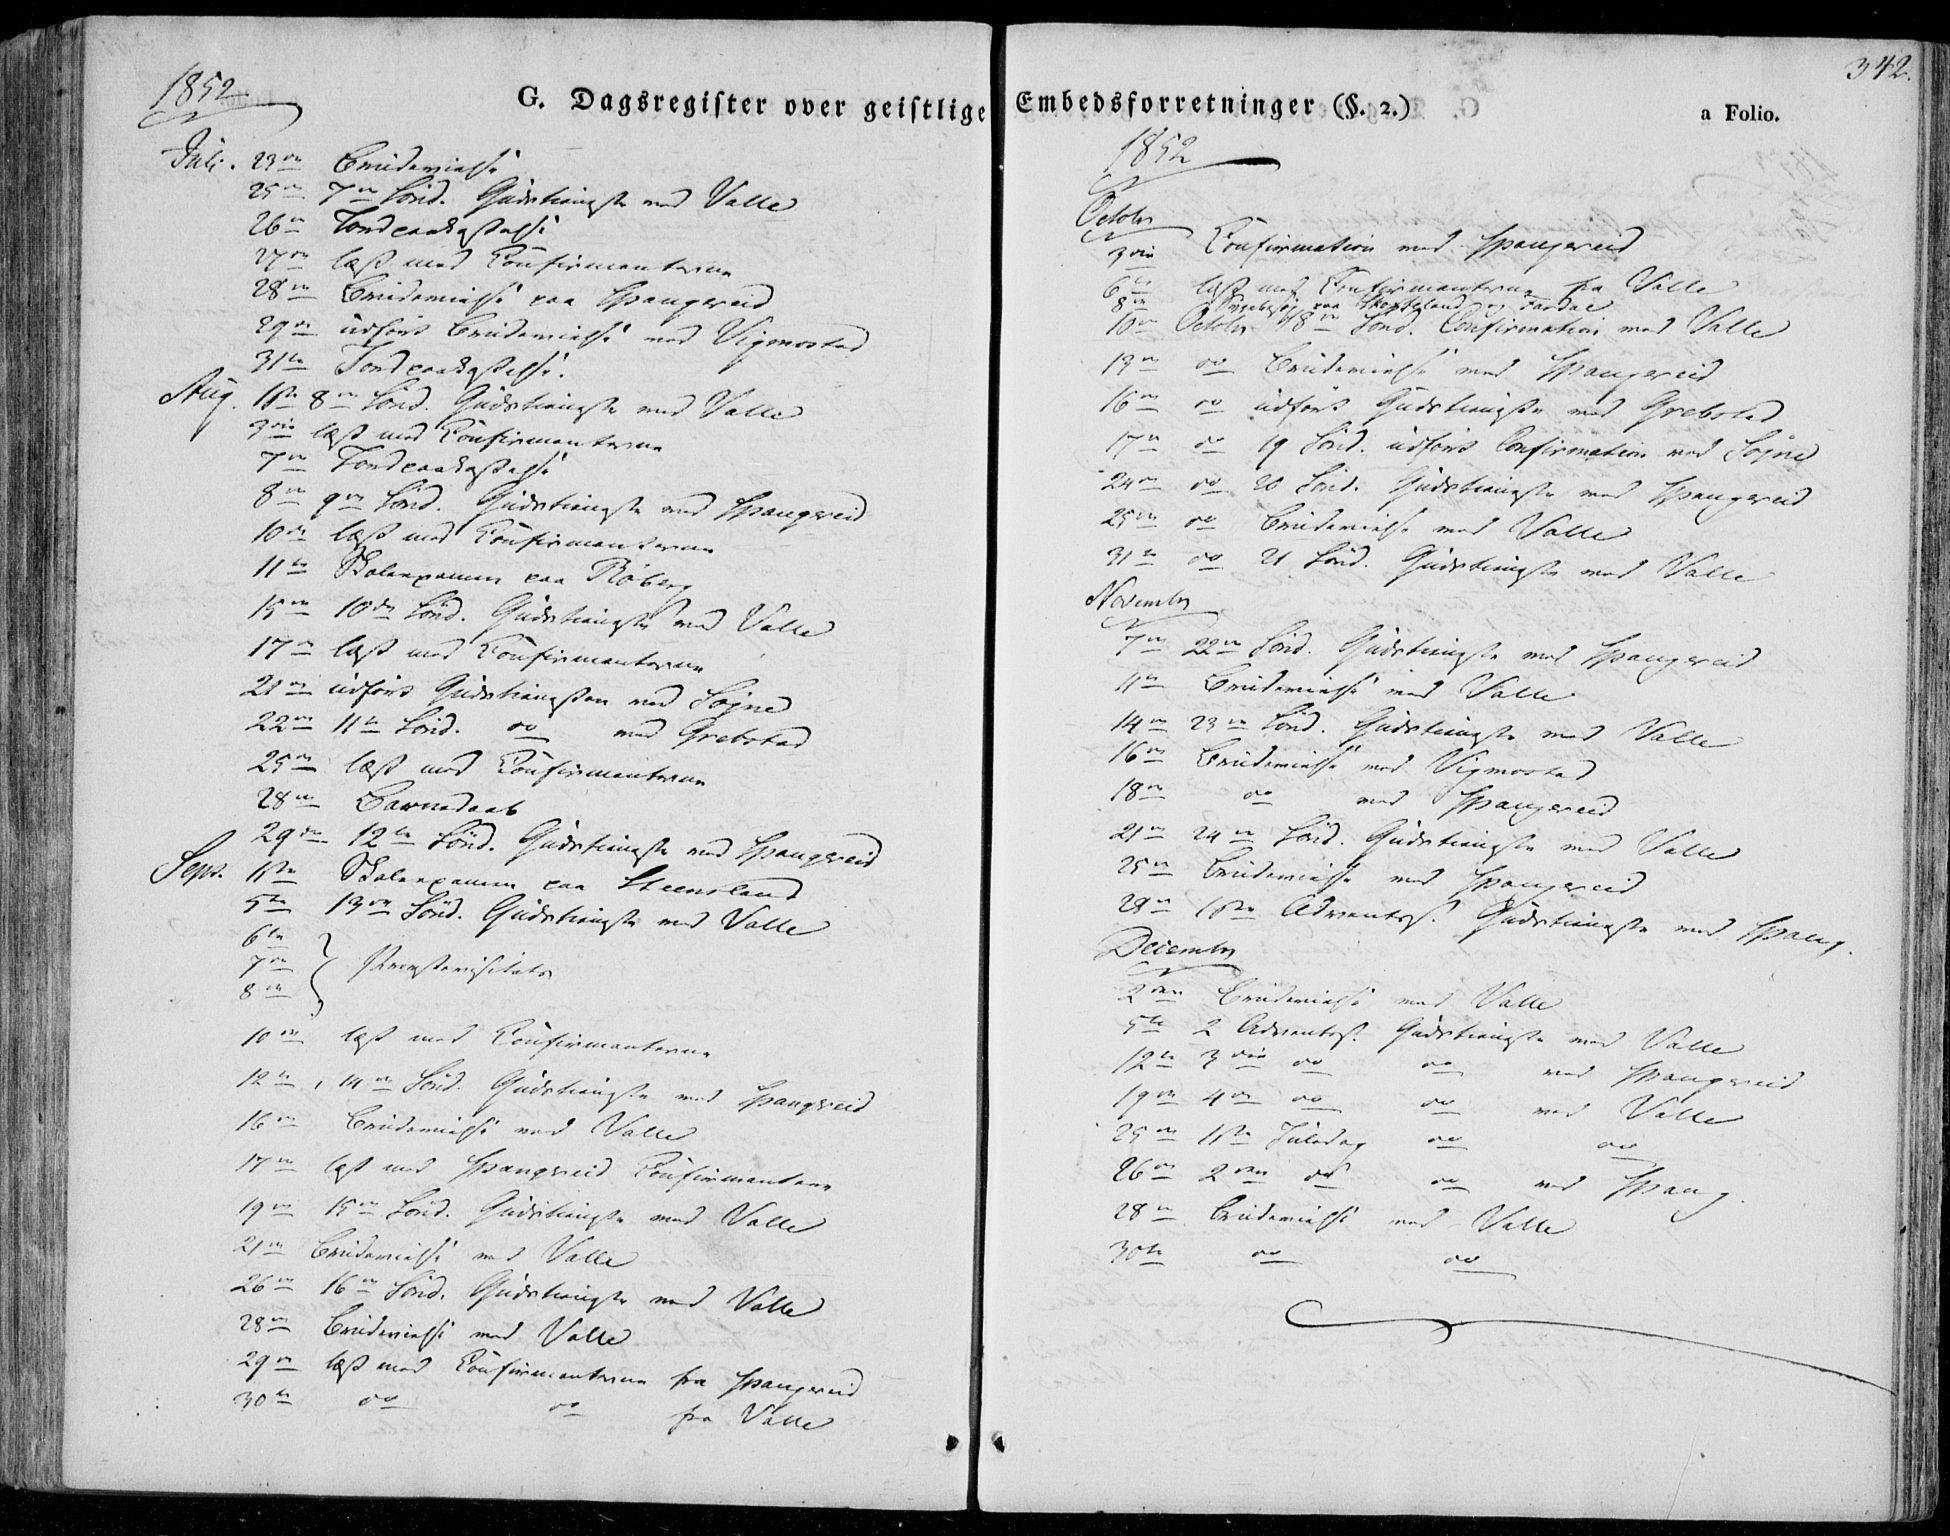 1852
G. Dagsregister over geistlige
Juli. 23de Brudevielse
25de 7de Sönd. Gudstieneste ved Valle
26de Jordpaakastelse
27de læst med Konfirmanterne
28de Brudevielse paa Spangereid
29de udført Brudevielse ved Vigmostad
31te Jordpaakastelse.
Aug. 1ste 8de Sönd. Gudstieneste ved Valle
3die læst med Konfirmanterne
7de Jordpaakastelse
8de 9de Sönd. Gudstieneste ved Spangereid
10de læst med Konfirmanterne
11te Skolexamen paa Röberg
15de 10de Sönd. Gudstieneste ved Valle
17de læst med Konfirmanterne
21de udført Gudstienesten ved Søgne
22de 11te Sönd. do ved Grebstad
25de læst med Konfirmanterne
28de Barnedaab
29de 12te Sönd. Gudstieneste ved Spangereid
Sept. 1ste Skolexamen paa Steensland
5te 13de Sönd. Gudstieneste ved Valle
6te
7de Provstevisitats
8de
10de læst med Konfirmanterne
12te, 14de Sönd. Gudstieneste ved Spangereid
16de Brudevielse ved Valle
17de læst med Spangereid Konfirmanter
19de 15de Sönd. Gudstieneste ved Valle
21de Brudevielse ved Valle
26de 16de Sönd. Gudstieneste ved Valle
28de Brudevielse ved Valle
29de læst med Konfirmanterne fra Spangereid
30te do do fra Valle
342.
Embedsforretninger (§. 2.) a Folio.
1852
October
3die Konfirmation ved Spangereid
6te læst med Konfirmanterne fra Valle
8de paa og
10de October 18de Sönd. Confirmation ved Valle
13de do Brudevielse ved Spangereid
16de do udført Gudstieneste ved Grebstad
17de do 19 Sönd. udført Confirmation ved Søgne
24de do 20 Sönd. Gudstieneste ved Spangereid
25de do Brudevielse ved Valle
31te do 21 Sönd. Gudstieneste ved Valle
November
7de 22de Sönd. Gudstieneste ved Spangereid
11te Brudevielse ved Valle
14de 23de Sönd. Gudstieneste ved Valle
16de Brudevielse ved Vigmostad
18de do ved Spangereid
21de 24de Sönd. Gudstieneste ved Valle
25de Brudevielse ved Spangereid
28de 1ste Advents. Gudstieneste ved Spang.
December
2den Brudevielse ved Valle
5te 2 Advents. Gudstieneste ved Valle
12te 3die do do ved Spangereid
19de 4de do do ved Valle
25de 1ste Juledag do do
26de 2den do do ved Spang.
28de Brudevielse ved Valle
30te do do